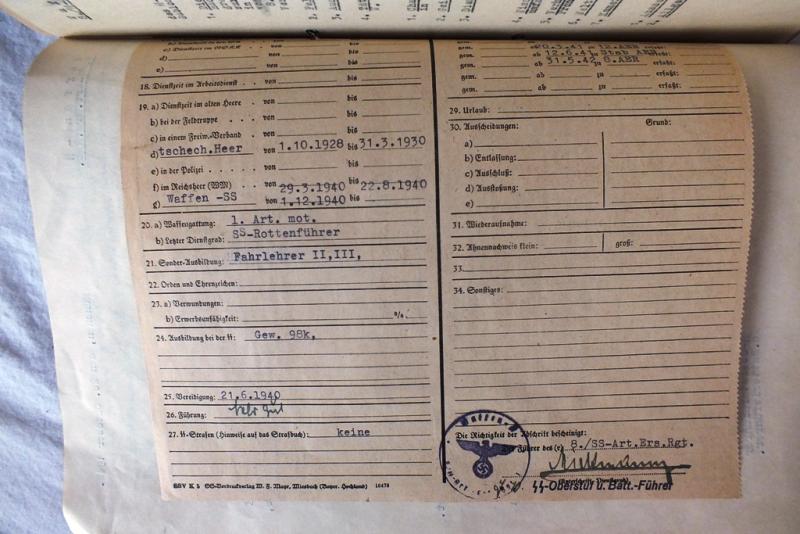 d) von bis
e) von bis
18. Dienstzeit im Arbeitsdienst . . von bis
19. a) Dienstzeit im alten Heere . . von bis
b) bei der Feldtruppe . . . von bis
c) in einem Freiw.-Verband . von bis
d) tschech.Heer von 1.10.1928 bis 31.3.1930
e) in der Polizei . . . . . von bis
f) im Reichsheer (WM) . . von 29.3.1940 bis 22.8.1940
g) Waffen -SS von 1.12.1940 bis
20. a) Waffengattung: 1. Art. mot.
b) Letzter Dienstgrad: SS-Rottenführer
21. Sonder-Ausbildung: Fahrlehrer II,III,
22. Orden und Ehrenzeichen:
23. a) Verwundungen:
b) Erwerbsunfähigkeit: %
24. Ausbildung bei der SS: Gew. 98k.
25. Vereidigung: 21.6.1940
26. Führung: sehr gut
27. SS-Strafen (Hinweise auf das Strafbuch): keine
SSV K 5 SS-Vordruckverlag W. F. Mayr, Miesbach (Bayer. Hochland)
gem. ab 12.6.41 zu Stab AER erfaßt:
gem. ab 31.5.42 zu 8.AER erfaßt:
gem. ab zu erfaßt:
gem. ab zu erfaßt:
29. Urlaub:
30. Ausscheidungen: Grund:
a)
b) Entlassung:
c) Ausschluß:
d) Ausstoßung:
e)
31. Wiederaufnahme:
32. Ahnennachweis klein: groß:
33.
34. Sonstiges:
Die Richtigkeit der Abschrift bescheinigt:
Der Führer des(r) 8./SS-Art.Ers.Rgt.
SS-Oberstuf u. Batt.-Führer